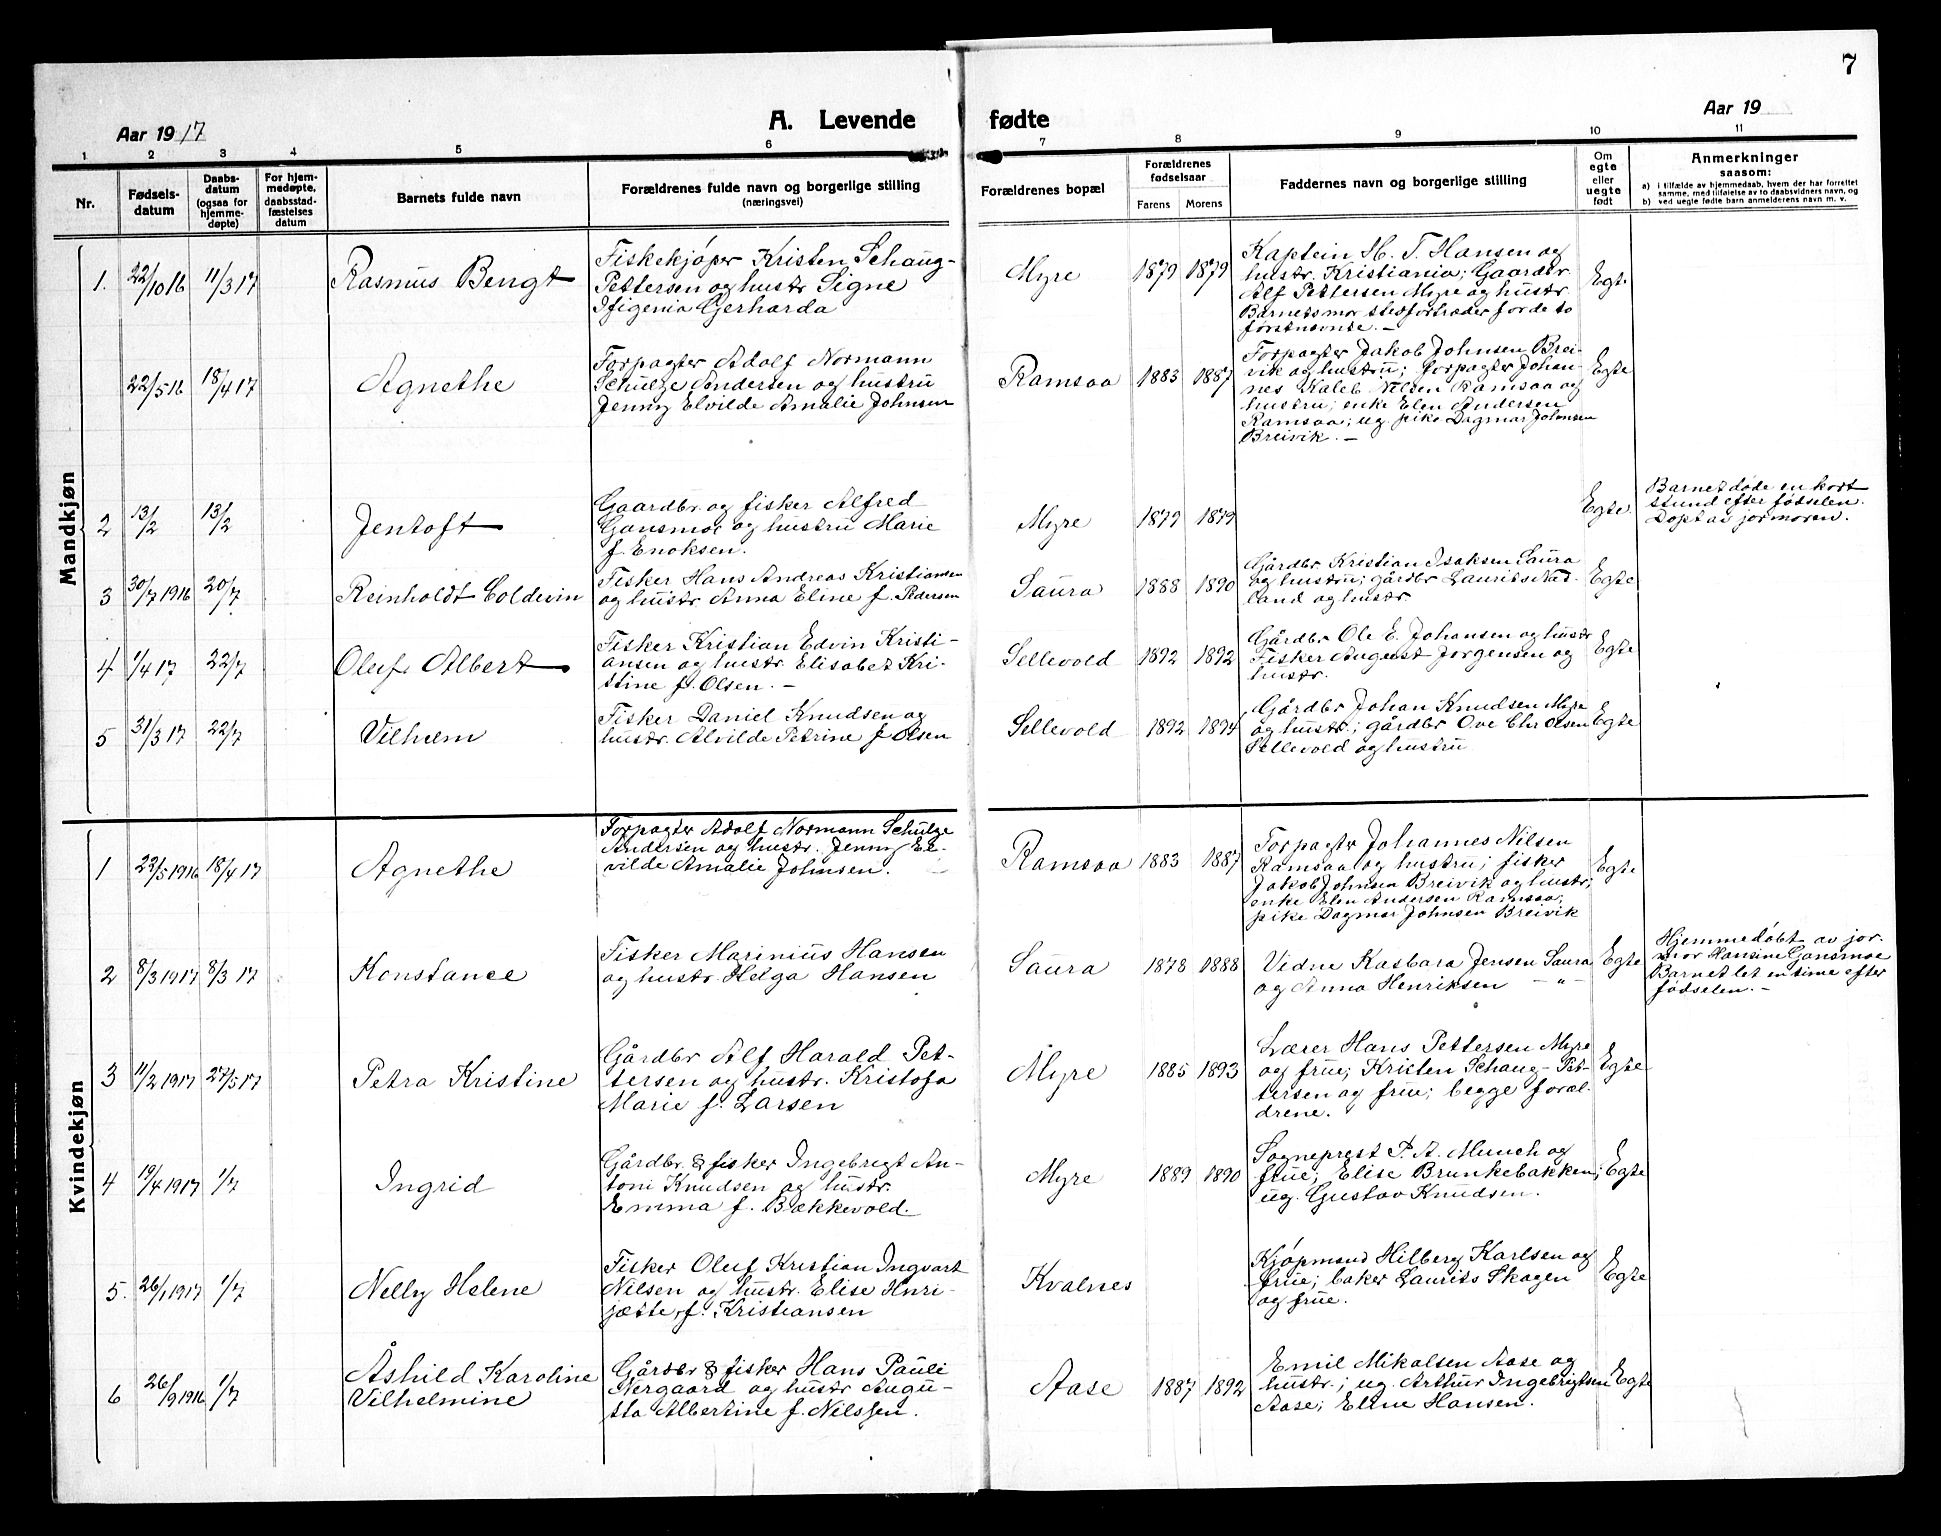 7
Aar 1917
A. Levende fødte
Aar 19
1 2 3 4 5 6 7 8 9 10 11
Nr.
Fødsels-
datum
Daabs-
datum
(ogsaa for
hjemme-
døpte)
For hjem-
medøpte,
daabsstad-
fæstelses
datum
Barnets fulde navn
Forældrenes fulde navn og borgerlige stilling
(næringsvei)
Forældrenes bopæl
Forældrenes
fødselsaar
Farens Morens
Faddernes navn og borgerlige stilling
Om
egte
eller
uegte
født
Anmerkninger
saasom:
a) i tilfælde av hjemmedaab, hvem der har forrettet
samme, med tilføielse av to daabsvidners navn, og
b) ved uegte fødte barn anmelderens navn m. v.
Mandkjøn
1. 22/10 16 11/3 17
Rasmus Bengt
Fiskekjøper Kristen Schaug-
Pettersen og hustr Signe
Ifigenia Gerharda
Myre 1879 1879
Kaptein H. T. Hansen og
hustr. Kristiania; Gaardbr.
Alf Pettersen Myre og hustr.
Barnets mor stedfortræder for de to
førstnævnte. —
Egte
22/5 16 18/4 17
Agnethe
Forpagter Adolf Normann
Schulze Andersen og hustru
Jenny Elvilde Amalie Johnsen
Ramsaa 1883 1887
Forpagter Jakob Johnsen Brei-
vik og hustru; forpagter Johan-
nes Kaleb Nilsen Ramsaa og
hustru; enke Elen Andersen
Ramsaa; ug. pike Dagmar Johnsen
Breivik. —
Egte
2 13/2 13/2
Jentoft
Gaardbr. og fisker Alfred
Gansmoe og hustru Marie
f. Enoksen.
Myre 1879 1879
Egte
Barnet døde en kort
stund efter fødselen.
Døpt av jormoren.
3 30/7 1916 20/7
Reinholdt Coldevin
Fisker Hans Andreas Kristiansen
og hustr Anna Eline f. Pedersen
Saura 1888 1890
Gårdbr. Kristian Isaksen Saura
og hustru; gårdbr Laurits Aad-
land og hustr.
Egte
4 1/4 17 22/7
Oluf Albert
Fisker Kristian Edvin Kristi-
ansen og hustr. Elisabet Kri-
stine f. Olsen. —
Sellevold 1892 1892
Gårdbr Ole E. Johansen og hustr
Fisker August Jørgensen og
hustr.
Egte
5 31/3 17 22/7
Vilhelm
Fisker Daniel Knudsen og
hustr. Alvilde Petrine f Olsen
Sellevold 1892 1894
Gårdbr Johan Knudsen Myre
og hustr.; gårdbr Ove Chr Olsen
Sellevold og hustru
Egte
Kvindekjøn
1 22/5 1916 18/4 17
Agnethe
Forpagter Adolf Normann Schulze
Andersen og hustr. Jenny El-
vilde Amalie Johnsen.
Ramsaa 1883 1887
Forpagter Johannes Nilsen
Ramsaa og hustru; fisker
Jakob Johnsen Breivik og hustr;
enke Elen Andersen Ramsaa;
pike Dagmar Johnsen Breivik
Egte
2 8/3 1917 8/3 17
Konstance
Fisker Marinius Hansen
og hustr. Helga Hansen
Saura 1878 1888
Vidne Kasbara Jensen Saura
og Anna Henriksen — " —
Egte
Hjemmedøbt av jor-
mor Hansine Gansmoe
Barnet let en time efter
fødselen. —
3 11/2 1917 27/5 17
Petra Kristine
Gårdbr Alf Harald Pet-
tersen og hustr. Kristofa
Marie f. Larsen
Myre 1885 1893
Lærer Hans Pettersen Myre
og frue; Kristen Schaug-Pet-
tersen og frue; begge foræl-
drene.
Egte
4 19/4 1917 1/7
Ingrid
Gårdbr. & fisker Ingebrigt An-
toni Knudsen og hustr.
Emma f. Bækkevold.
Myre 1889 1890
Sogneprest P. A. Munch og
frue; Elise Brunkebakken;
ug. Gustav Knudsen.
Egte
5. 26/1 1917 1/7
Nelly Helene
Fisker Oluf Kristian Ingvart
Nilsen og hustr. Elise Henri-
jette, f. Kristiansen
Kvalnes
Kjøpmand Hilberg Karlsen og
frue; baker Laurits Skogen
og frue.
Egte
6 26/9 1916 1/7
Åshild Karoline
Vilhelmine
Gårdbr & fisker Hans Pauli
Nergaard og hustr Augu-
sta Albertine f. Nilssen.
Aase 1887 1892
Emil Mikalsen Aase og
hustr.; ug. Arthur Ingebrigtsen
Aase; Eline Hansen.
Egte